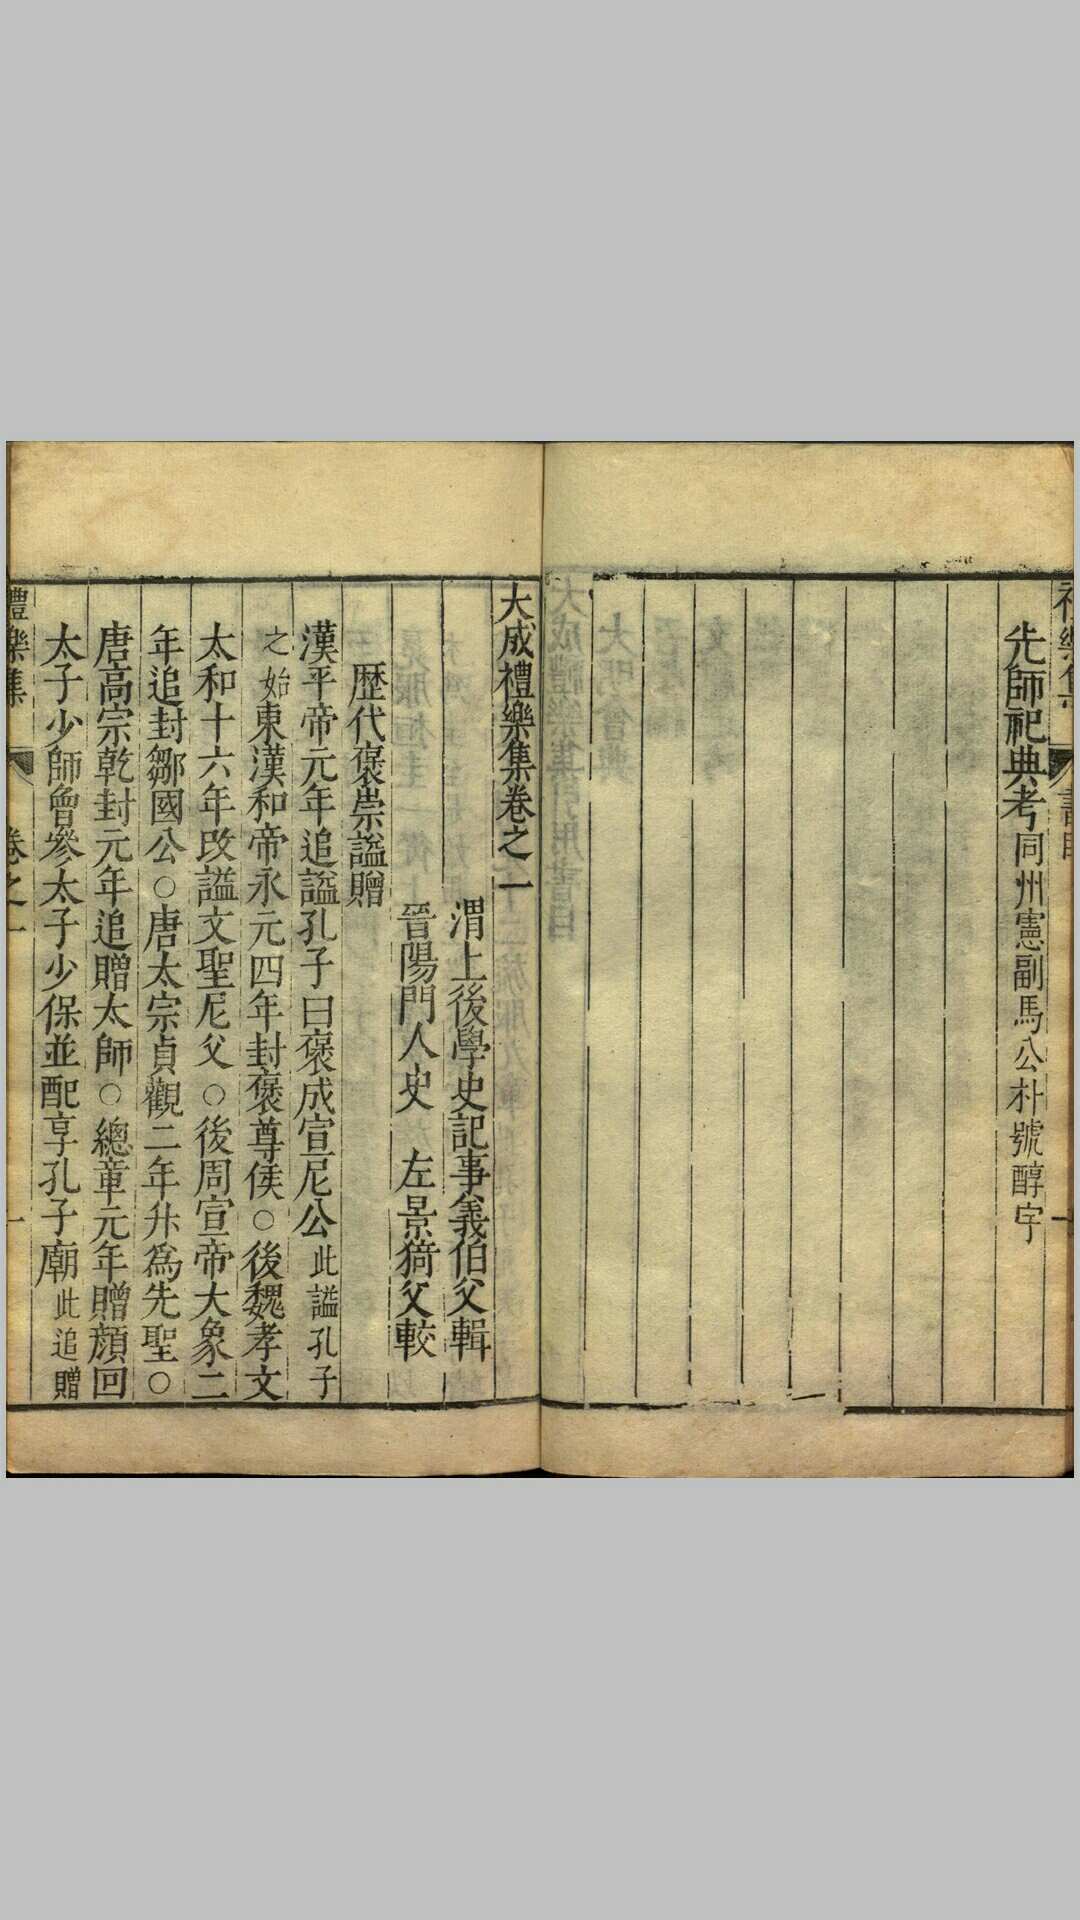 先師祀典考同州憲副馬公朴號醇宇
大成禮樂集卷之一
渭上後學史記事義伯父輯
晉陽門人史　左景猗父較
歷代褒崇謚贈
漢平帝元年追謚孔子曰褒成宣尼公此謚孔子
之始東漢和帝永元四年封褒尊侯○後魏孝文
太和十六年改謚文聖尼父○後周宣帝大象二
年追封鄒國公○唐太宗貞觀二年升為先聖○
唐高宗乾封元年追贈太師○總章元年贈顏回
太子少師曾參太子少保並配享孔子廟此追贈
禮樂集　卷之一　一